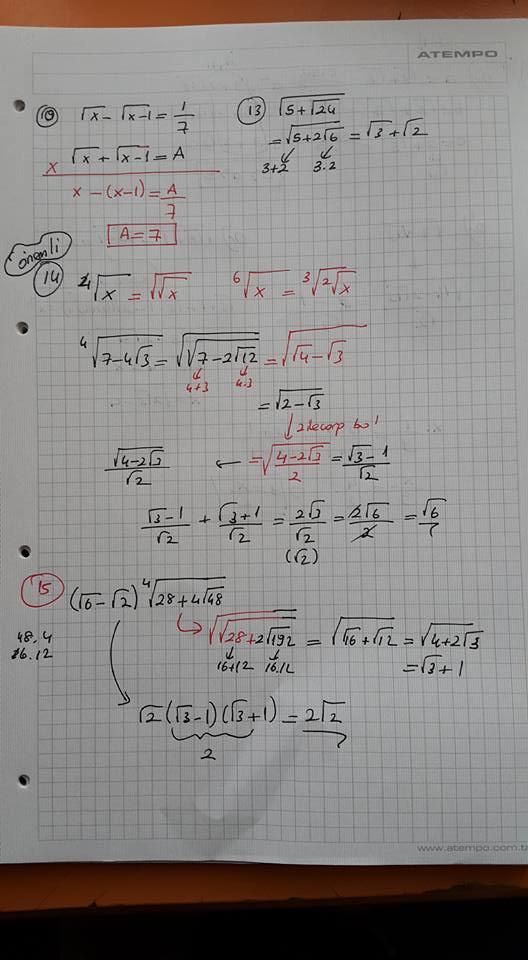 ATEMPO
10) √x - √x-1 = 1/7
x √x + √x-1 = A
x - (x-1) = A/7
A = 7
13) √5+√24
= √5+2√6 = √3 + √2
3+2 3.2
önemli
14) ⁴√x = √√x ⁶√x = ³√²√x
⁴√7-4√3 = √√7-2√12 = √√4-√3
4+3 4.3
= √2-√3
2 ile çarp böl
√4-2√3/√2 ← = √4-2√3/2 = √3-1/√2
√3-1/√2 + √3+1/√2 = 2√3/√2 = 2√6/2 = √6
(√2)
15) (√6-√2) ⁴√28+4√48
48.4
16.12
√√28+2√192 = √√16+√12 = √4+2√3
16+12 16.12
= √3+1
√2 (√3-1) (√3+1) = 2√2
2
www.atempo.com.t